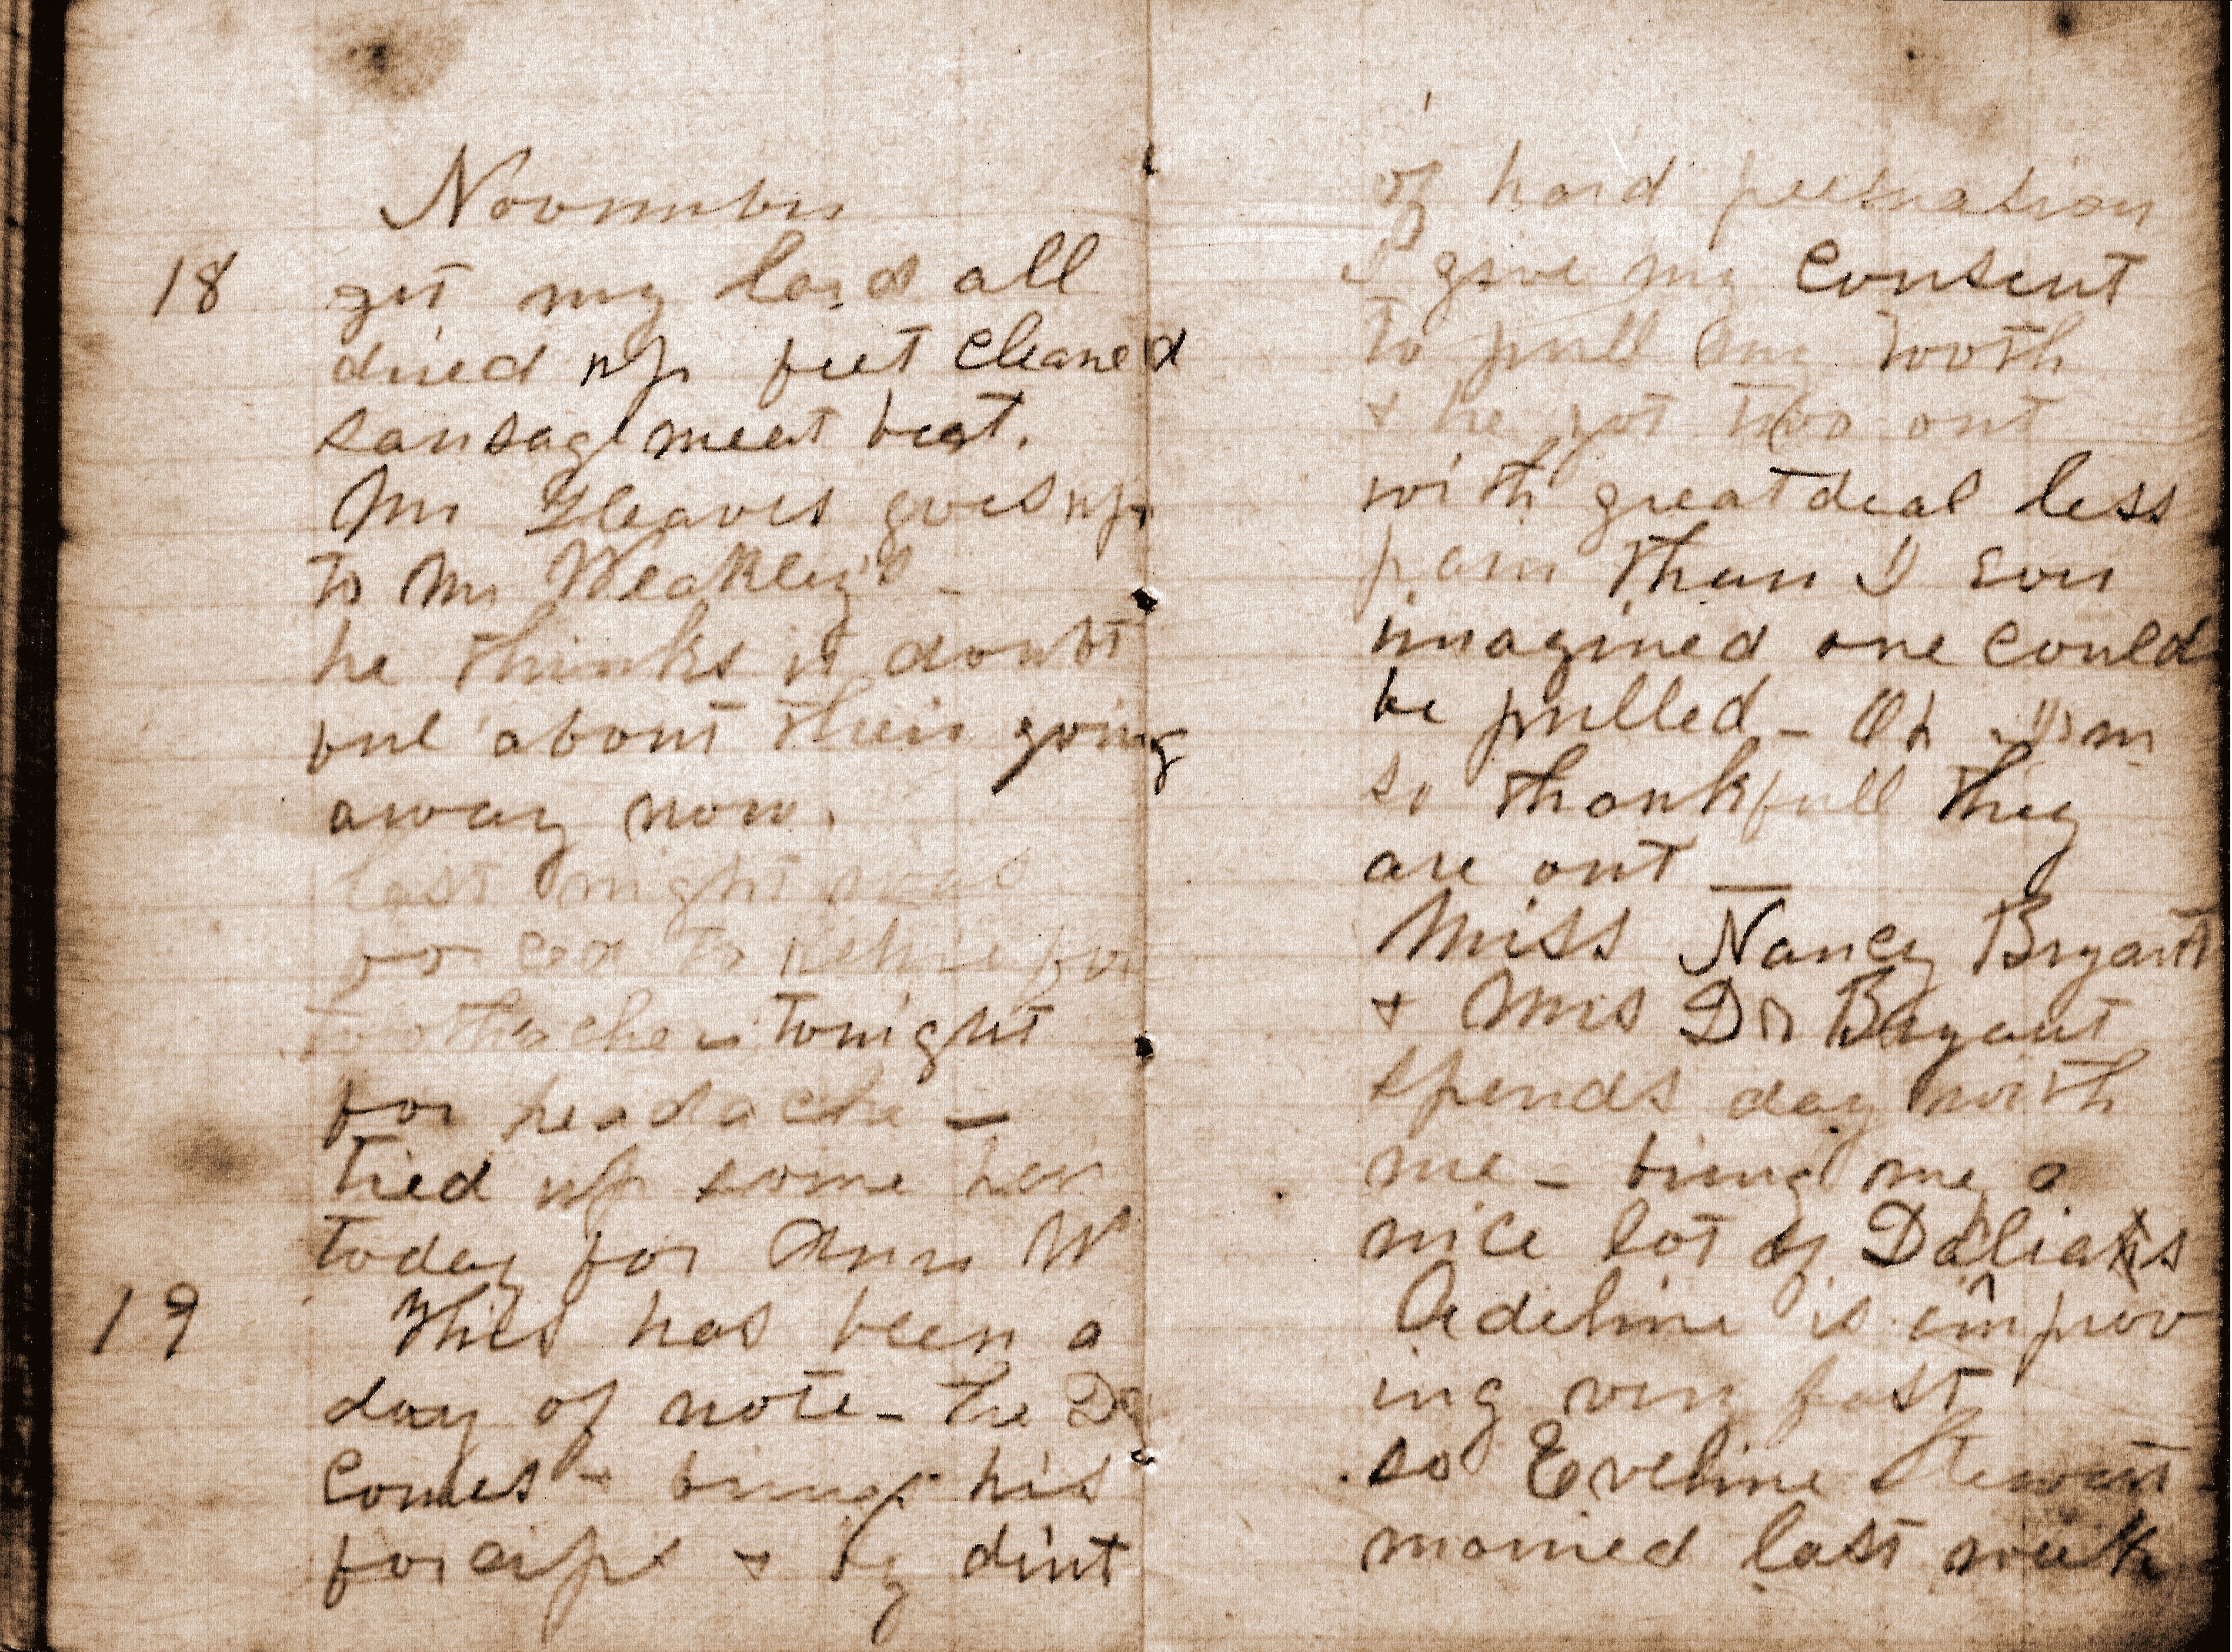 November
18 get my lard all
dried up feet cleaned
sausage meat beat.
Mr Gleaves goes up
to Mr Weakley's -
he thinks it doubt
ful about their going
away now.
last night was
forced to retire for
toothache - tonight
for headache -
tied up some
today for Ann W
19 This has been a
day of note - the Dr
comes + brings his
forcips + by dint
of hard persuation
I give my consent
to pull my tooth
+ he got two out
with great deal less
pain than I ever
imagined one could
be pulled - Oh I am
so thankfull they
are out -
Miss Nancy Bryant
+ Mrs Dr Bryant
spends day with
me - bring me a
nice lot of
Adeline is improv
ing very fast
so Eveline Stewart
married last week